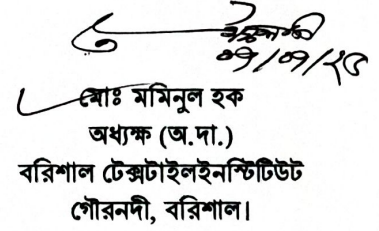 ০৭/০৭/২৫
মোঃ মমিনুল হক
অধ্যক্ষ (অ.দা.)
বরিশাল টেক্সটাইলইনস্টিটিউট
গৌরনদী, বরিশাল।